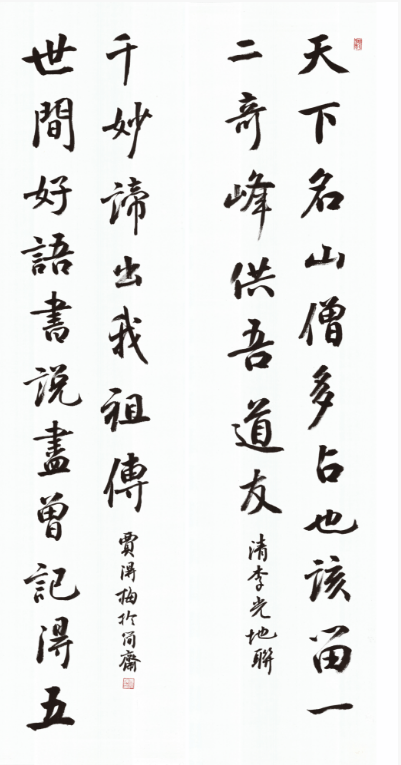 天下名山僧多占也該留一
二奇峰供吾道友
清李光地聯
世間好語書說盡曾記得五
千妙諦出我祖傳
賈得梅於簡齋